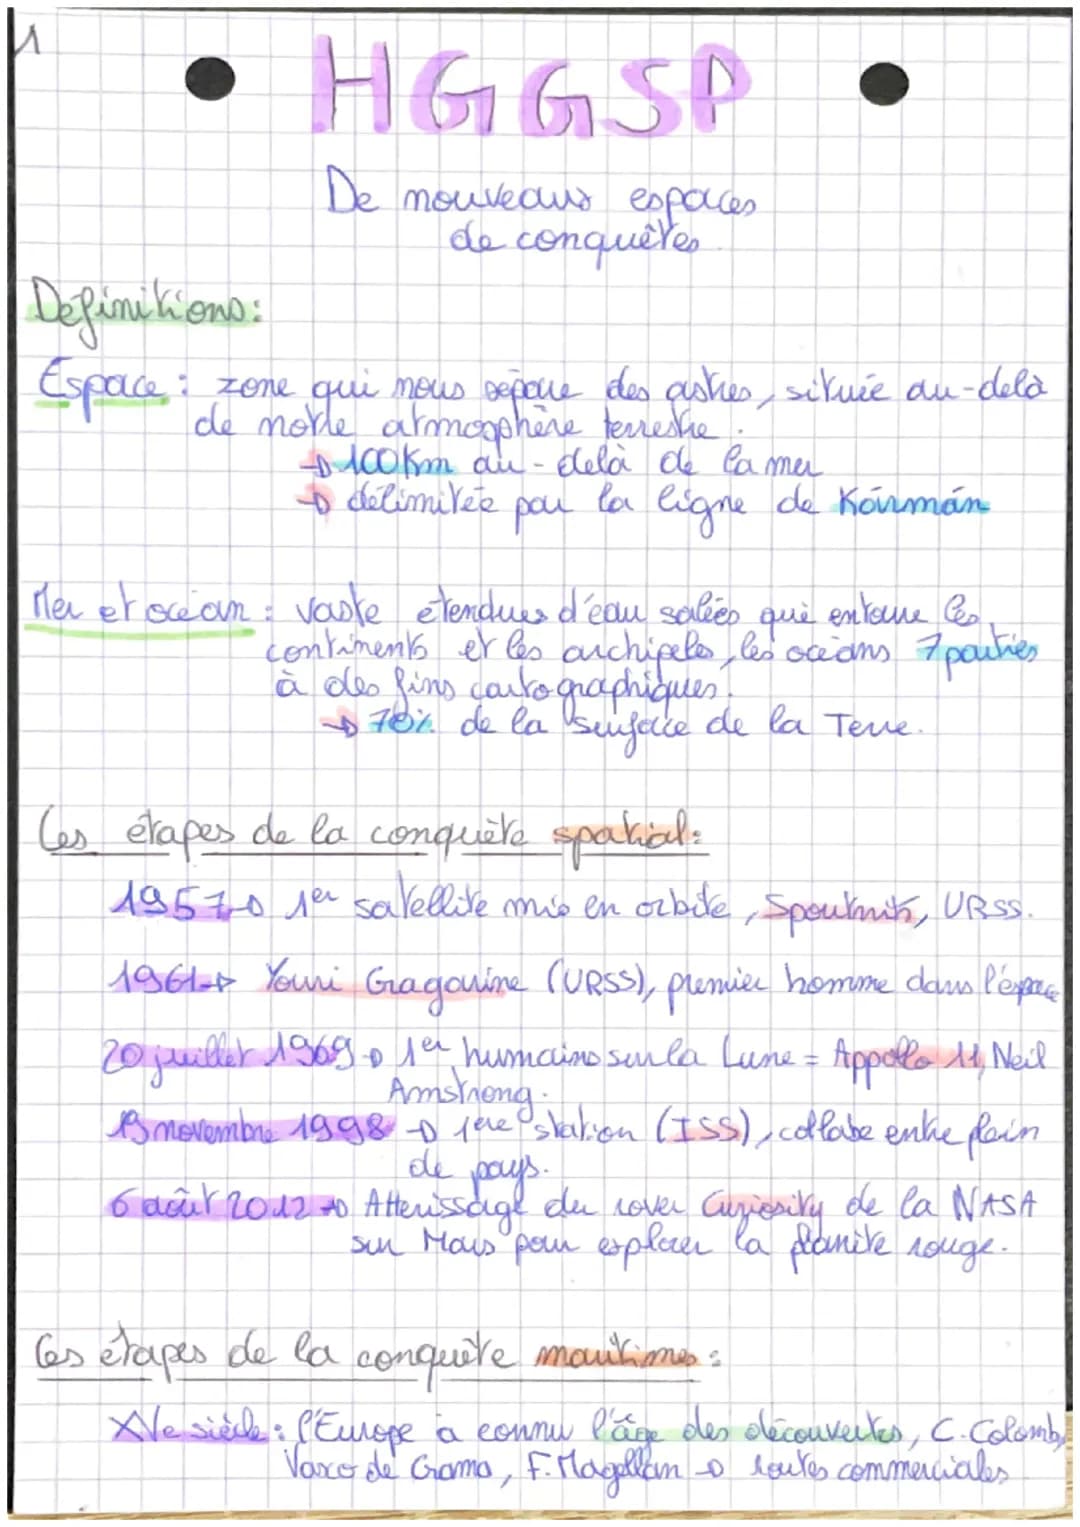 1
HGGSP
De nouveaux espaces
de conquêtes
Définitions:
Espace : zone qui nous sépare des astres, située au-delà
de notre atmosphère terrestre.
→ 100km au-delà de la mer
→ délimitée par la ligne de Kármán
Mer et océan : vaste étendues d'eau salées qui entoure les
continents et les archipels, les océans 7 parties
à des fins cartographiques.
→ 70% de la surface de la Terre.
Les étapes de la conquête spatial:
1957→ 1er satellite mis en orbite, Spoutnik, URSS.
1961→ Youri Gragarine (URSS), premier homme dans l'espace
20 juillet 1969→ 1er humains sur la Lune = Appollo 11, Neil
Amstrong.
novembre 1998 → 1ère station (ISS), collabe entre plein
de pays.
6 août 2012 → Atterissage du rover Curiosity de la NASA
sur Mars pour explorer la planète rouge.
Les étapes de la conquête maritimes :
XVe siècle : l'Europe a connu l'âge des découvertes, C. Colomb,
Vasco de Gama, F. Magellan → routes commerciales